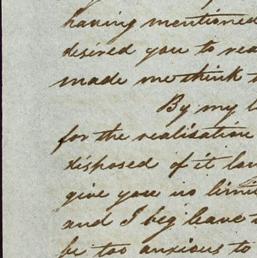 having mentioned
desired you to rea
made me think t
By my l
for the realisation
disposed of it lan
give you no limi
and I beg leave t
be too anxious to